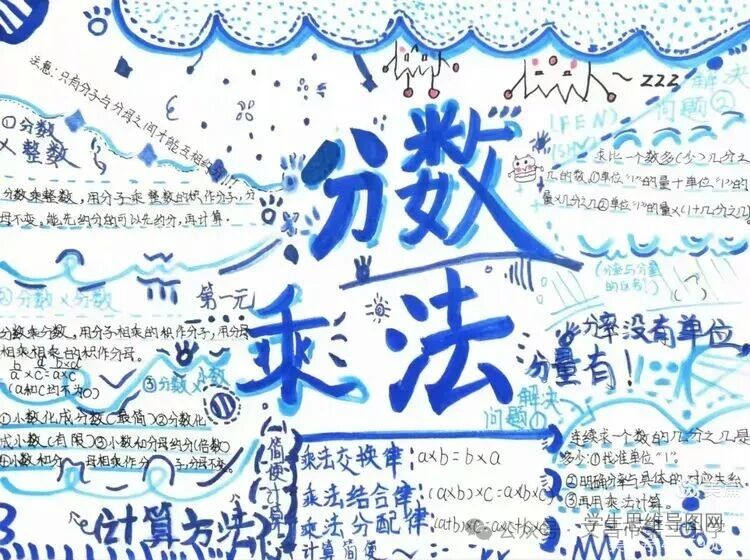 注意:只有分子与分母之间才能互相约分!!!
①分数
×整数
分数乘整数,用分子乘整数的积作分子,分
母不变。能先约分的可以先约分,再计算。
②分数×分数
分数乘分数,用分子相乘的积作分子,用分母
相乘相乘的积作分母。
(a和c均不为0)
③分数×小数
①小数化成分数(最简)②分数化
成小数(有限)③小数和分母约分(倍数)
计算方法
第一元
分数
乘法
(FEN)
(SHU)
zzz
简便计算
乘法交换律:a×b=b×a
乘法结合律:(a×b)×c=a×b×c
乘法分配律:(a+b)×c=a×c
计算简便
解决
问题②
求比一个数多(少)几分之
几的数。①单位"1"的量±单位"1"的
量×几分之几②单位"1"的量×(1±几分之几)
(分率与分量
的区别!)
分率没有单位,
分量有!
解决
问题①
连续求一个数的几分之几是
多少:①找准单位"1"。
②明确分率与具体的对应关系
③再用乘法计算。
学生思维导图网